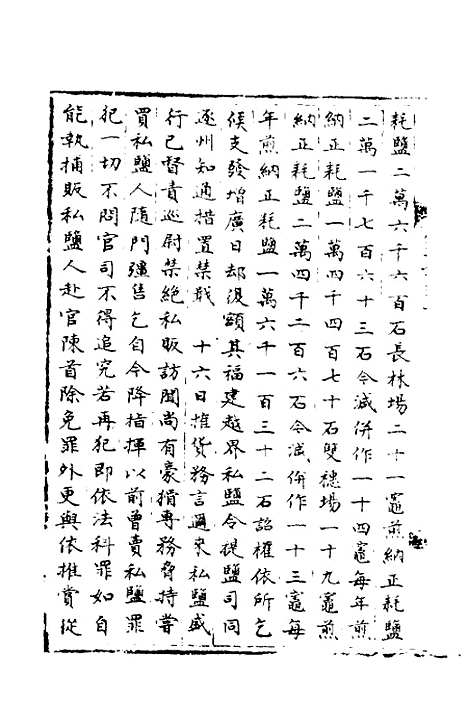 耗鹽二萬六千六百石長林場二十一竈煎納正耗鹽
二萬一千七百六十三石今減併作一十四竈每年煎
納正耗鹽一萬四千四百七十石雙穗場一十九竈煎
納正耗鹽二萬四千二百六石今減併作一十三竈每
年煎納正耗鹽一萬六千一百三十二石詔權依所乞
候支發增廣日却復額其福建越界私鹽令提鹽司同
逐州知通措置禁戢　十六日推貨務言邇来私鹽盛
行已督責巡尉禁絶私販訪聞尚有豪猾專務脅持嘗
買私鹽人隨門彊售乞自今降指揮以前曽賣私鹽罪
犯一切不問官司不得追究若再犯即依法科罪如自
能執捕販私鹽人赴官陳首除免罪外更與依推賞從